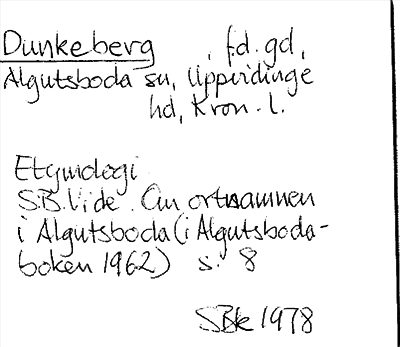 Dunkeberg, f.d. gd,
Algutsboda sn, Uppvidinge
hd, Kron. l.
Etymologi
S.B. Vide. Om ortnamnen
i Algutsboda (i Algutsboda-
boken 1962) s. 8
SBk 1978